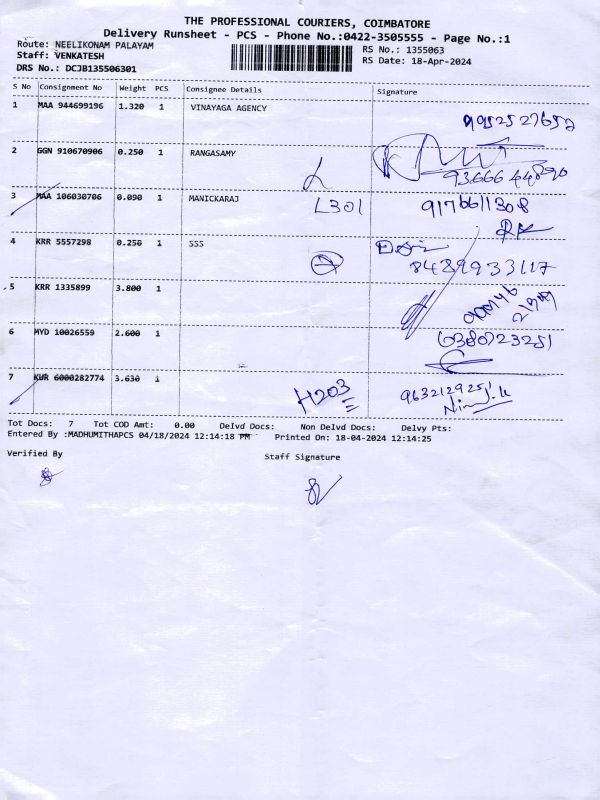 THE PROFESSIONAL COURIERS, COIMBATORE
Delivery Runsheet - PCS - Phone No.:0422-3505555 - Page No.:1
Route: NEELIKONAM PALAYAM
RS No.: 1355063
Staff: VENKATESH
RS Date: 18-Apr-2024
DRS No.: DCJB135506301
S No Consignment No Weight PCS Consignee Details Signature
1 MAA 944699196 1.320 1 VINAYAGA AGENCY
9952527652
2 GGN 910670906 0.250 1 RANGASAMY
3 MAA 106030706 0.090 1 MANICKARAJ
L301 9176611308
4 KRR 5557298 0.250 1 SSS
8489933117
5 KRR 1335899 3.800 1
6 MYD 10026559 2.600 1
7 KUR 6000282774 3.630 1
H203
Tot Docs: 7 Tot COD Amt: 0.00 Delvd Docs: Non Delvd Docs: Delvy Pts:
Entered By :MADHUMITHAPCS 04/18/2024 12:14:18 PM Printed On: 18-04-2024 12:14:25
Verified By
Staff Signature